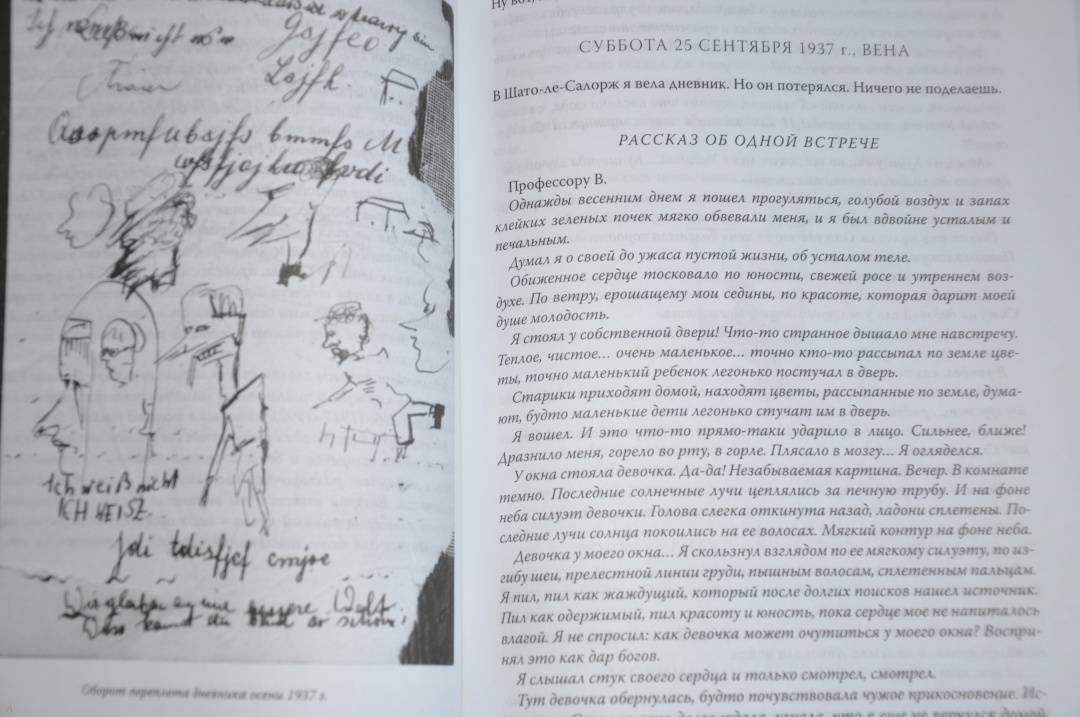 Ich weiß nicht
Gajfeo
Lajfh.
Ich weiß nicht
ICH HEISZ.
Jdi tdisfjcf cmjoe
Wir glauben an eine bessere Welt.
Оборот переплета дневника осени 1937 г.
СУББОТА 25 СЕНТЯБРЯ 1937 г., ВЕНА
В Шато-ле-Салорж я вела дневник. Но он потерялся. Ничего не поделаешь.
РАССКАЗ ОБ ОДНОЙ ВСТРЕЧЕ
Профессору В.
Однажды весенним днем я пошел прогуляться, голубой воздух и запах
клейких зеленых почек мягко обвевали меня, и я был вдвойне усталым и
печальным.
Думал я о своей до ужаса пустой жизни, об усталом теле.
Обиженное сердце тосковало по юности, свежей росе и утреннем воз-
духе. По ветру, ерошащему мои седины, по красоте, которая дарит моей
душе молодость.
Я стоял у собственной двери! Что-то странное дышало мне навстречу.
Теплое, чистое... очень маленькое... точно кто-то рассыпал по земле цве-
ты, точно маленький ребенок легонько постучал в дверь.
Старики приходят домой, находят цветы, рассыпанные по земле, дума-
ют, будто маленькие дети легонько стучат им в дверь.
Я вошел. И это что-то прямо-таки ударило в лицо. Сильнее, ближе!
Дразнило меня, горело во рту, в горле. Плясало в мозгу... Я огляделся.
У окна стояла девочка. Да-да! Незабываемая картина. Вечер. В комнате
темно. Последние солнечные лучи цеплялись за печную трубу. И на фоне
неба силуэт девочки. Голова слегка откинута назад, ладони сплетены. По-
следние лучи солнца покоились на ее волосах. Мягкий контур на фоне неба.
Девочка у моего окна... Я скользнул взглядом по ее мягкому силуэту, по из-
гибу шеи, прелестной линии груди, пышным волосам, сплетенным пальцам.
Я пил, пил как жаждущий, который после долгих поисков нашел источник.
Пил как одержимый, пил красоту и юность, пока сердце мое не напиталось
влагой. Я не спросил: как девочка может очутиться у моего окна? Воспри-
нял это как дар богов.
Я слышал стук своего сердца и только смотрел, смотрел.
Тут девочка обернулась, будто почувствовала чужое прикосновение. Ис-